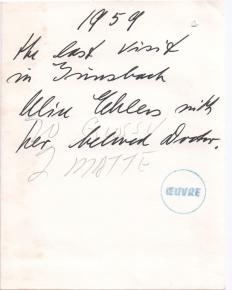 1959
the last visit
in Günsbach
Alice Ehlers with
her beloved Doctor.
DO GLOSSY
2 MATTE
ŒUVRE